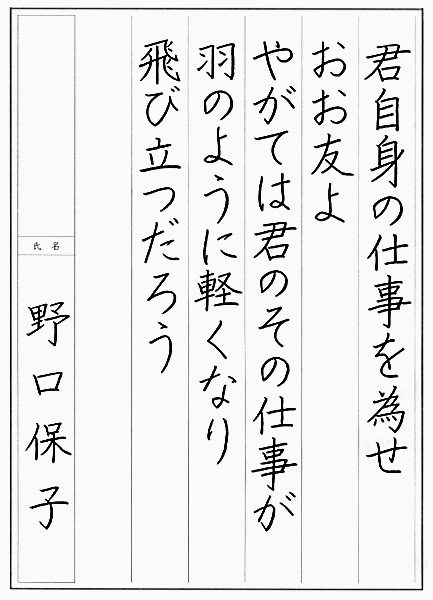 君自身の仕事を為せ
おお友よ
やがては君のその仕事が
羽のように軽くなり
飛び立つだろう
氏名
野口保子